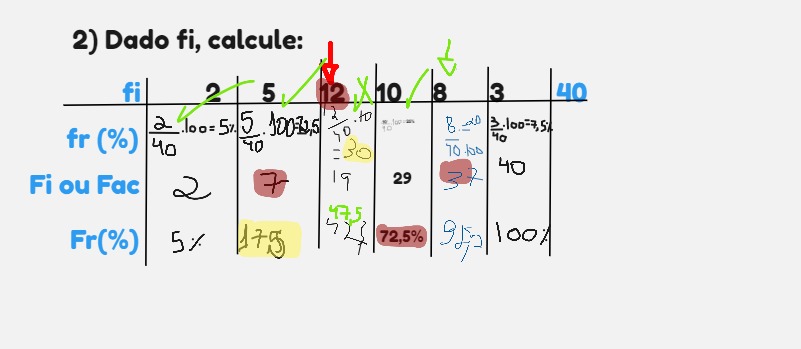 2) Dado fi, calcule:
fi 2 5 12 10 8 3 40
fr (%) 2/40 .100=5% 5/40 .100=12,5 12/40 .10 =30 8/40 .100 3/40 .100=7,5%
Fi ou Fac 2 7 19 29 37 40
Fr(%) 5% 17,5 47,5 72,5% 100%